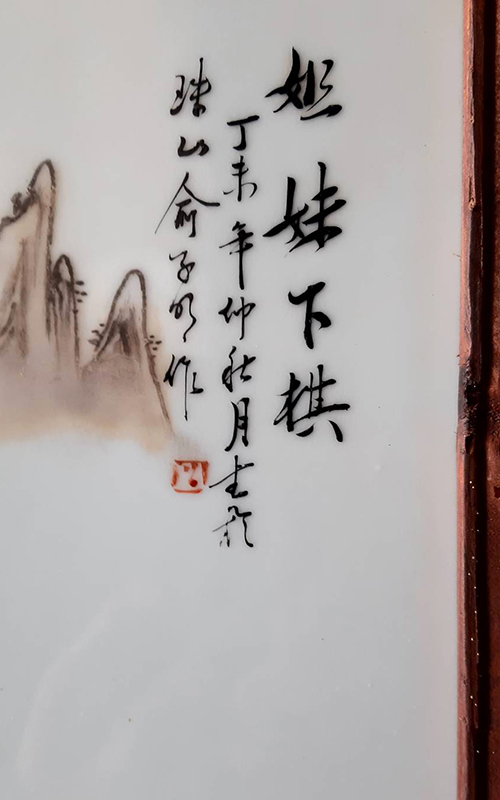 姐妹下棋
丁未年仲秋月书于
珠山俞子明作